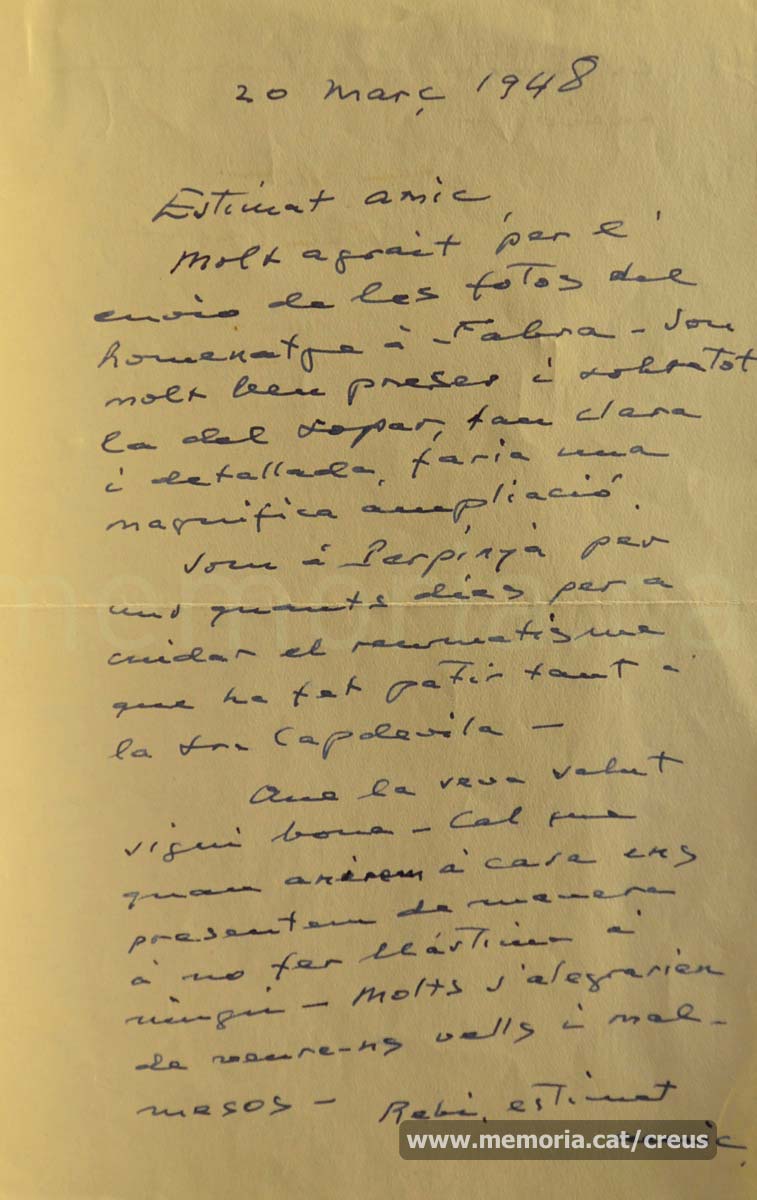 20 Març 1948
Estimat amic,
Molt agrait per l'
envio de les fotos del
homenatge à Fabra - Son
molt ben preses i sobretot
la del sopar, tan clara
i detallada, faria una
magnifica ampliació.
Som à Perpinyà per
uns quants dies per a
cuidar el reumatisme
que ha fet patir tant a
la Sra Capdevila -
Que la seva salut
sigui bona - Cal que
quan anirem à casa ens
presentem de manera
à no fer llástima a
ningú - Molts s'alegrarien
de veure-ns vells i mal-
mesos - Rebi, estimat
amic,
www.memoria.cat/creus
memoria.ca